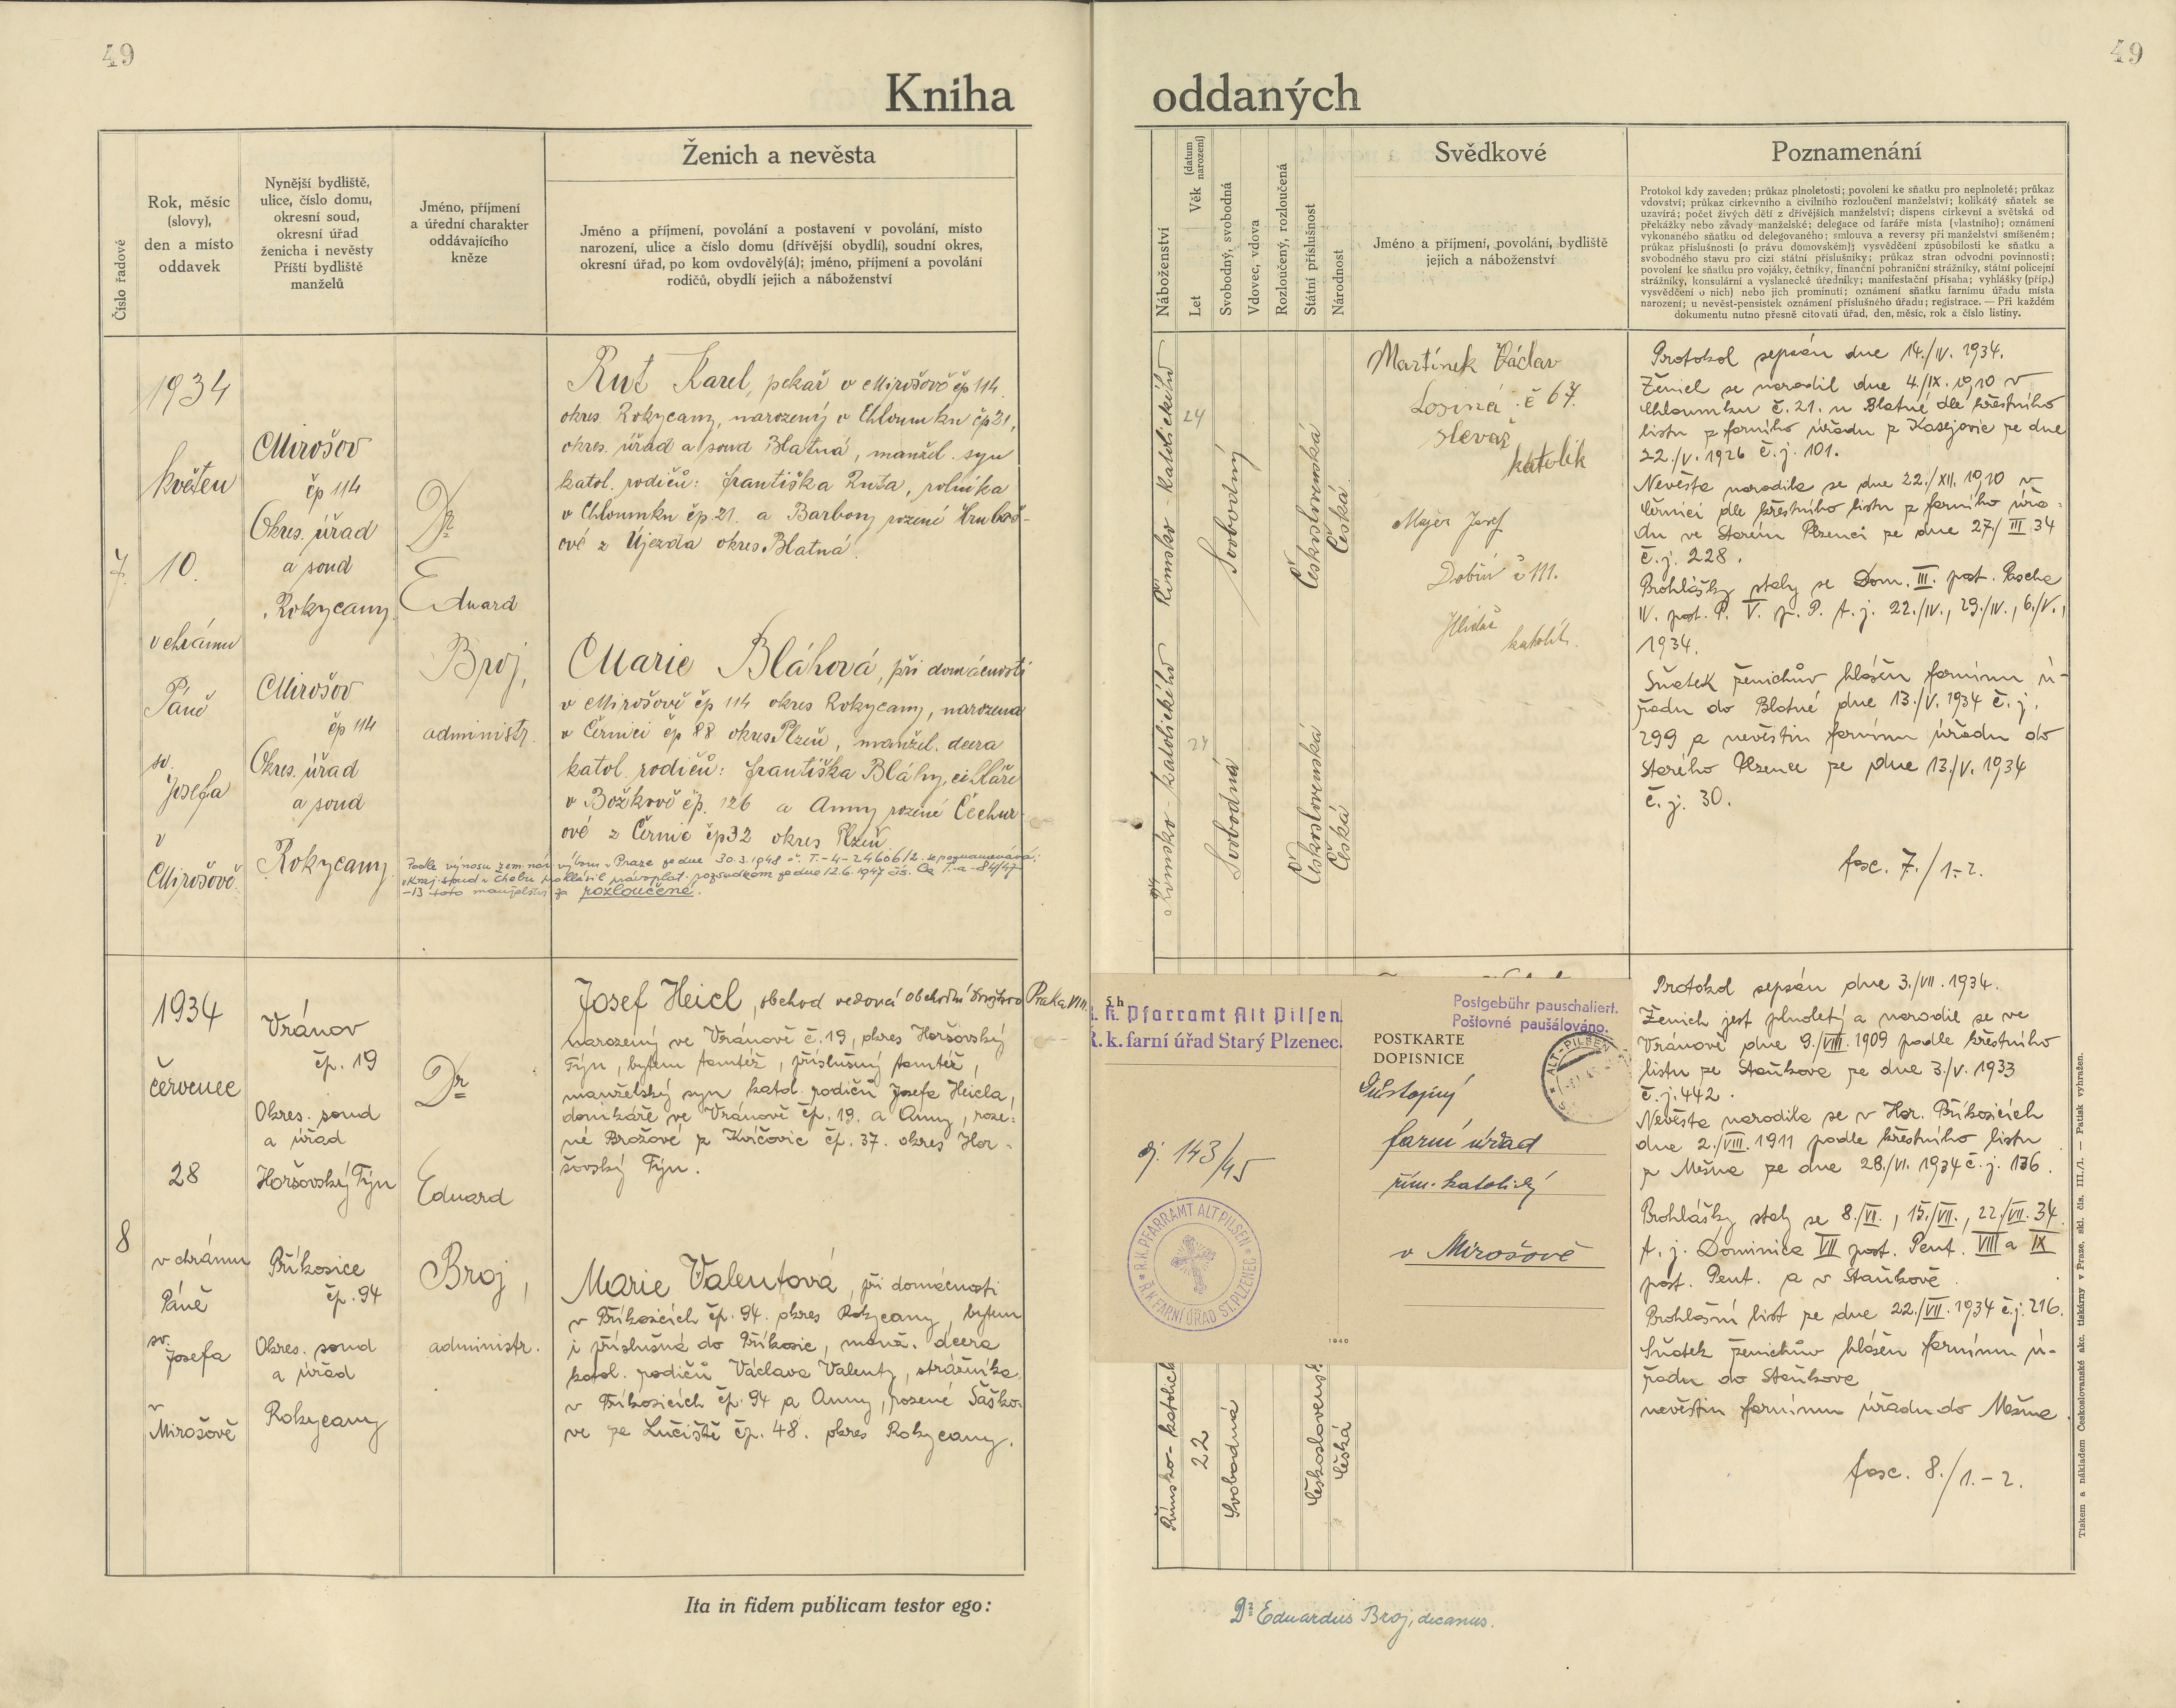 49
49
Kniha oddaných
Číslo řadové
Rok, měsíc
(slovy),
den a místo
oddavek
Nynější bydliště,
ulice, číslo domu,
okresní soud,
okresní úřad
ženicha i nevěsty
Příští bydliště
manželů
Jméno, příjmení
a úřední charakter
oddávajícího
kněze
Ženich a nevěsta
Jméno a příjmení, povolání a postavení v povolání, místo
narození, ulice a číslo domu (dřívější obydlí), soudní okres,
okresní úřad, po kom ovdovělý(á); jméno, příjmení a povolání
rodičů, obydlí jejich a náboženství
Náboženství
Let
Věk (datum narození)
Svobodný, svobodná
Vdovec, vdova
Rozloučený, rozloučená
Státní příslušnost
Národnost
Svědkové
Jméno a příjmení, povolání, bydliště
jejich a náboženství
Poznamenání
Protokol kdy zaveden; průkaz plnoletosti; povolení ke sňatku pro neplnoleté; průkaz
vdovství; průkaz církevního a civilního rozloučení manželství; kolikátý sňatek se
uzavírá; počet živých dětí z dřívějších manželství; dispens církevní a světská od
překážky nebo závady manželské; delegace od faráře místa (vlastního); oznámení
vykonaného sňatku od delegovaného; smlouva a reversy při manželství smíšeném;
průkaz příslušnosti (o právu domovském); vysvědčení způsobilosti ke sňatku a
svobodného stavu pro cizí státní příslušníky; průkaz stran odvodní povinnosti;
povolení ke sňatku pro vojáky, četníky, finanční pohraniční strážníky, státní policejní
strážníky, konsulární a vyslanecké úředníky; manifestační přísaha; vyhlášky (příp.)
vysvědčení o nich) nebo jich prominutí; oznámení sňatku farnímu úřadu místa
narození; u nevěst-pensistek oznámení příslušného úřadu; registrace. — Při každém
dokumentu nutno přesně citovati úřad, den, měsíc, rok a číslo listiny.
7.
1934
květen
10.
v chrámu
Páně
sv.
Josefa
v
Mirošově
Mirošov
čp 114
Okres. úřad
a soud
Rokycany.
Mirošov
čp 114
Okres. úřad
a soud
Rokycany.
Dr
Eduard
Broj,
administr.
Rut Karel, pekař v Mirošově čp 114
okres Rokycany, narozený v Chloumku čp 21,
okres. úřad a soud Blatná, manžel. syn
katol. rodičů: Františka Ruta, rolníka
v Chloumku čp. 21. a Barbory rozené Hruboš-
ové z Újezda okres Blatná.
Marie Bláhová, při domácnosti
v Mirošově čp 114 okres Rokycany, narozena
v Černici čp 88 okres Plzeň, manžel. dcera
katol. rodičů: Františka Bláhy, cihláře
v Božkově čp. 126 a Anny rozené Čechur-
ové z Černic čp 32 okres Plzeň.
Podle výnosu zem. nár. výboru v Praze ze dne 30.3.1948 č. T.-4-2460612. se poznamenává:
Kraj. soud v Chebu prohlásil právoplat. rozsudkem ze dne 12.6.1947 čís. Ck I.-a-84/47
-13 toto manželství za rozloučené.
Římsko-katolického
24
Svobodný
Československá
Česká
Římsko-katolického
24
Svobodná
Československá
Česká
Martínek Václav
Losiná č 67.
slevač
katolík
Majer Josef
Dobřív č 111.
Hlídač
katolík.
Protokol sepsán dne 14./IV. 1934.
Ženich se narodil dne 4./IX. 1910 v
Chloumku č. 21. u Blatné dle křestního
listu z farního úřadu z Kasejovic ze dne
22./V. 1926 č.j. 101.
Nevěsta narodila se dne 22./XII. 1910 v
Černici dle křestního listu z farního úřa-
du ve Starém Plzenci ze dne 27/III 34
č.j. 228.
Prohlášky staly se Dom. III. post. Pascha
IV. post. P. V. p. P. t.j. 22./IV., 29./IV., 6./V.,
1934.
Sňatek ženichův hlášen farnímu ú-
řadu do Blatné dne 13./V. 1934 č.j.
299 a nevěstin farnímu úřadu do
Starého Plzence ze dne 13./V. 1934
č.j. 30.
fasc. 7./1-2.
8
1934
červenec
28
v chrámu
Páně
sv.
Josefa
v
Mirošově
Vránov
čp. 19
Okres. soud
a úřad
Horšovský Týn
Příkosice
čp. 94
Okres. soud
a úřad
Rokycany
Dr
Eduard
Broj,
administr.
Josef Heicl, obchod vedoucí obchodní družstvo Praha VIII.
narozený ve Vránově č. 19, okres Horšovský
Týn, bytem tamtéž, příslušný tamtéž,
manželský syn katol. rodičů Josefa Heicla,
domkáře ve Vránově čp. 19. a Anny, roze-
né Brožové z Kvíčovic čp. 37. okres Hor-
šovský Týn.
Marie Valentová, při domácnosti
v Příkosicích čp. 94. okres Rokycany, bytem
i příslušná do Příkosic, manž. dcera
katol. rodičů Václava Valenty, strážníka
v Příkosicích čp. 94 a Anny, rozené Šaško-
vé ze Lučiště čp. 48. okres Rokycany.
S h
R. k. Pfarramt Alt Pilsen.
Ř. k. farní úřad Starý Plzenec.
Postgebühr pauschaliert.
Poštovné paušálováno.
POSTKARTE
DOPISNICE
ALT-PILSEN
Důstojný
farní úřad
řím. katolický
v Mirošově
čj. 143/45
R. K. PFARRAMT ALT PILSEN
Ř. K. FARNÍ ÚŘAD ST. PLZENEC
1940
Římsko-katolick
22
Svobodná
Československ
Česká
Protokol sepsán dne 3./VII. 1934.
Ženich jest plnoletý a narodil se ve
Vránově dne 9./VIII. 1909 podle křestního
listu ze Staňkova ze dne 3./V. 1933
č.j. 442.
Nevěsta narodila se v Hor. Příkosicích
dne 2./VIII. 1911 podle křestního listu
z Mešna ze dne 28./VI. 1934 č.j. 136.
Prohlášky staly se 8./VII., 15./VII., 22./VII. 34.
t.j. Dominica VII post. Pent. VIII a IX
post. Pent. a v Staňkově.
Prohlašní list ze dne 22./VII. 1934 č.j. 216.
Sňatek ženichův hlášen farnímu ú-
řadu do Staňkova
nevěstin farnímu úřadu do Mešna.
fasc. 8./1.-2.
Tiskem a nákladem Československé akc. tiskárny v Praze, skl. čís. III./1. — Patisk vyhražen.
Ita in fidem publicam testor ego:
Dr Eduardus Broj, decanus.